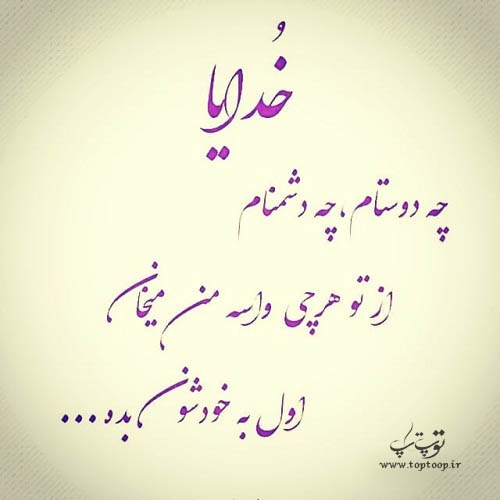 خُدایا
چه دوستام، چه دشمنام
از تو هرچی واسه من میخان
اول به خودشون بده...
توپ تاپ
www.toptoop.ir